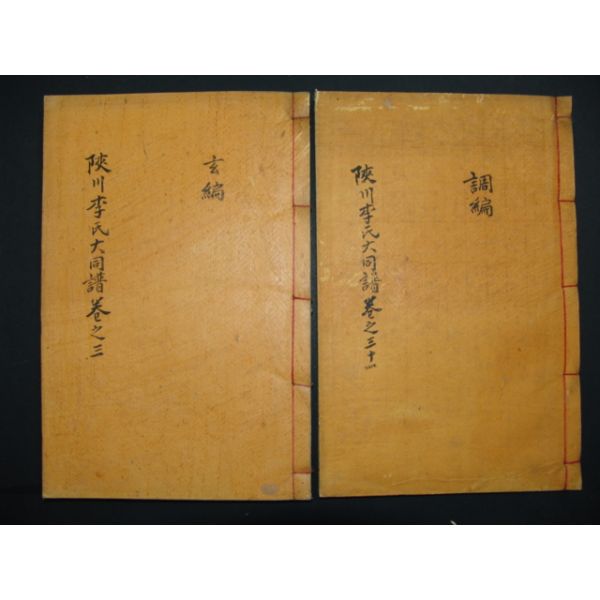 玄編
陜川李氏大同譜卷之三
調編
陜川李氏大同譜卷之三十四